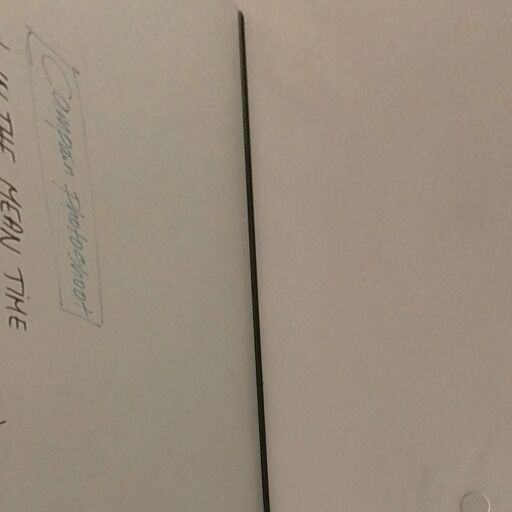 Campain Photoshoot
IN THE MEAN TIME